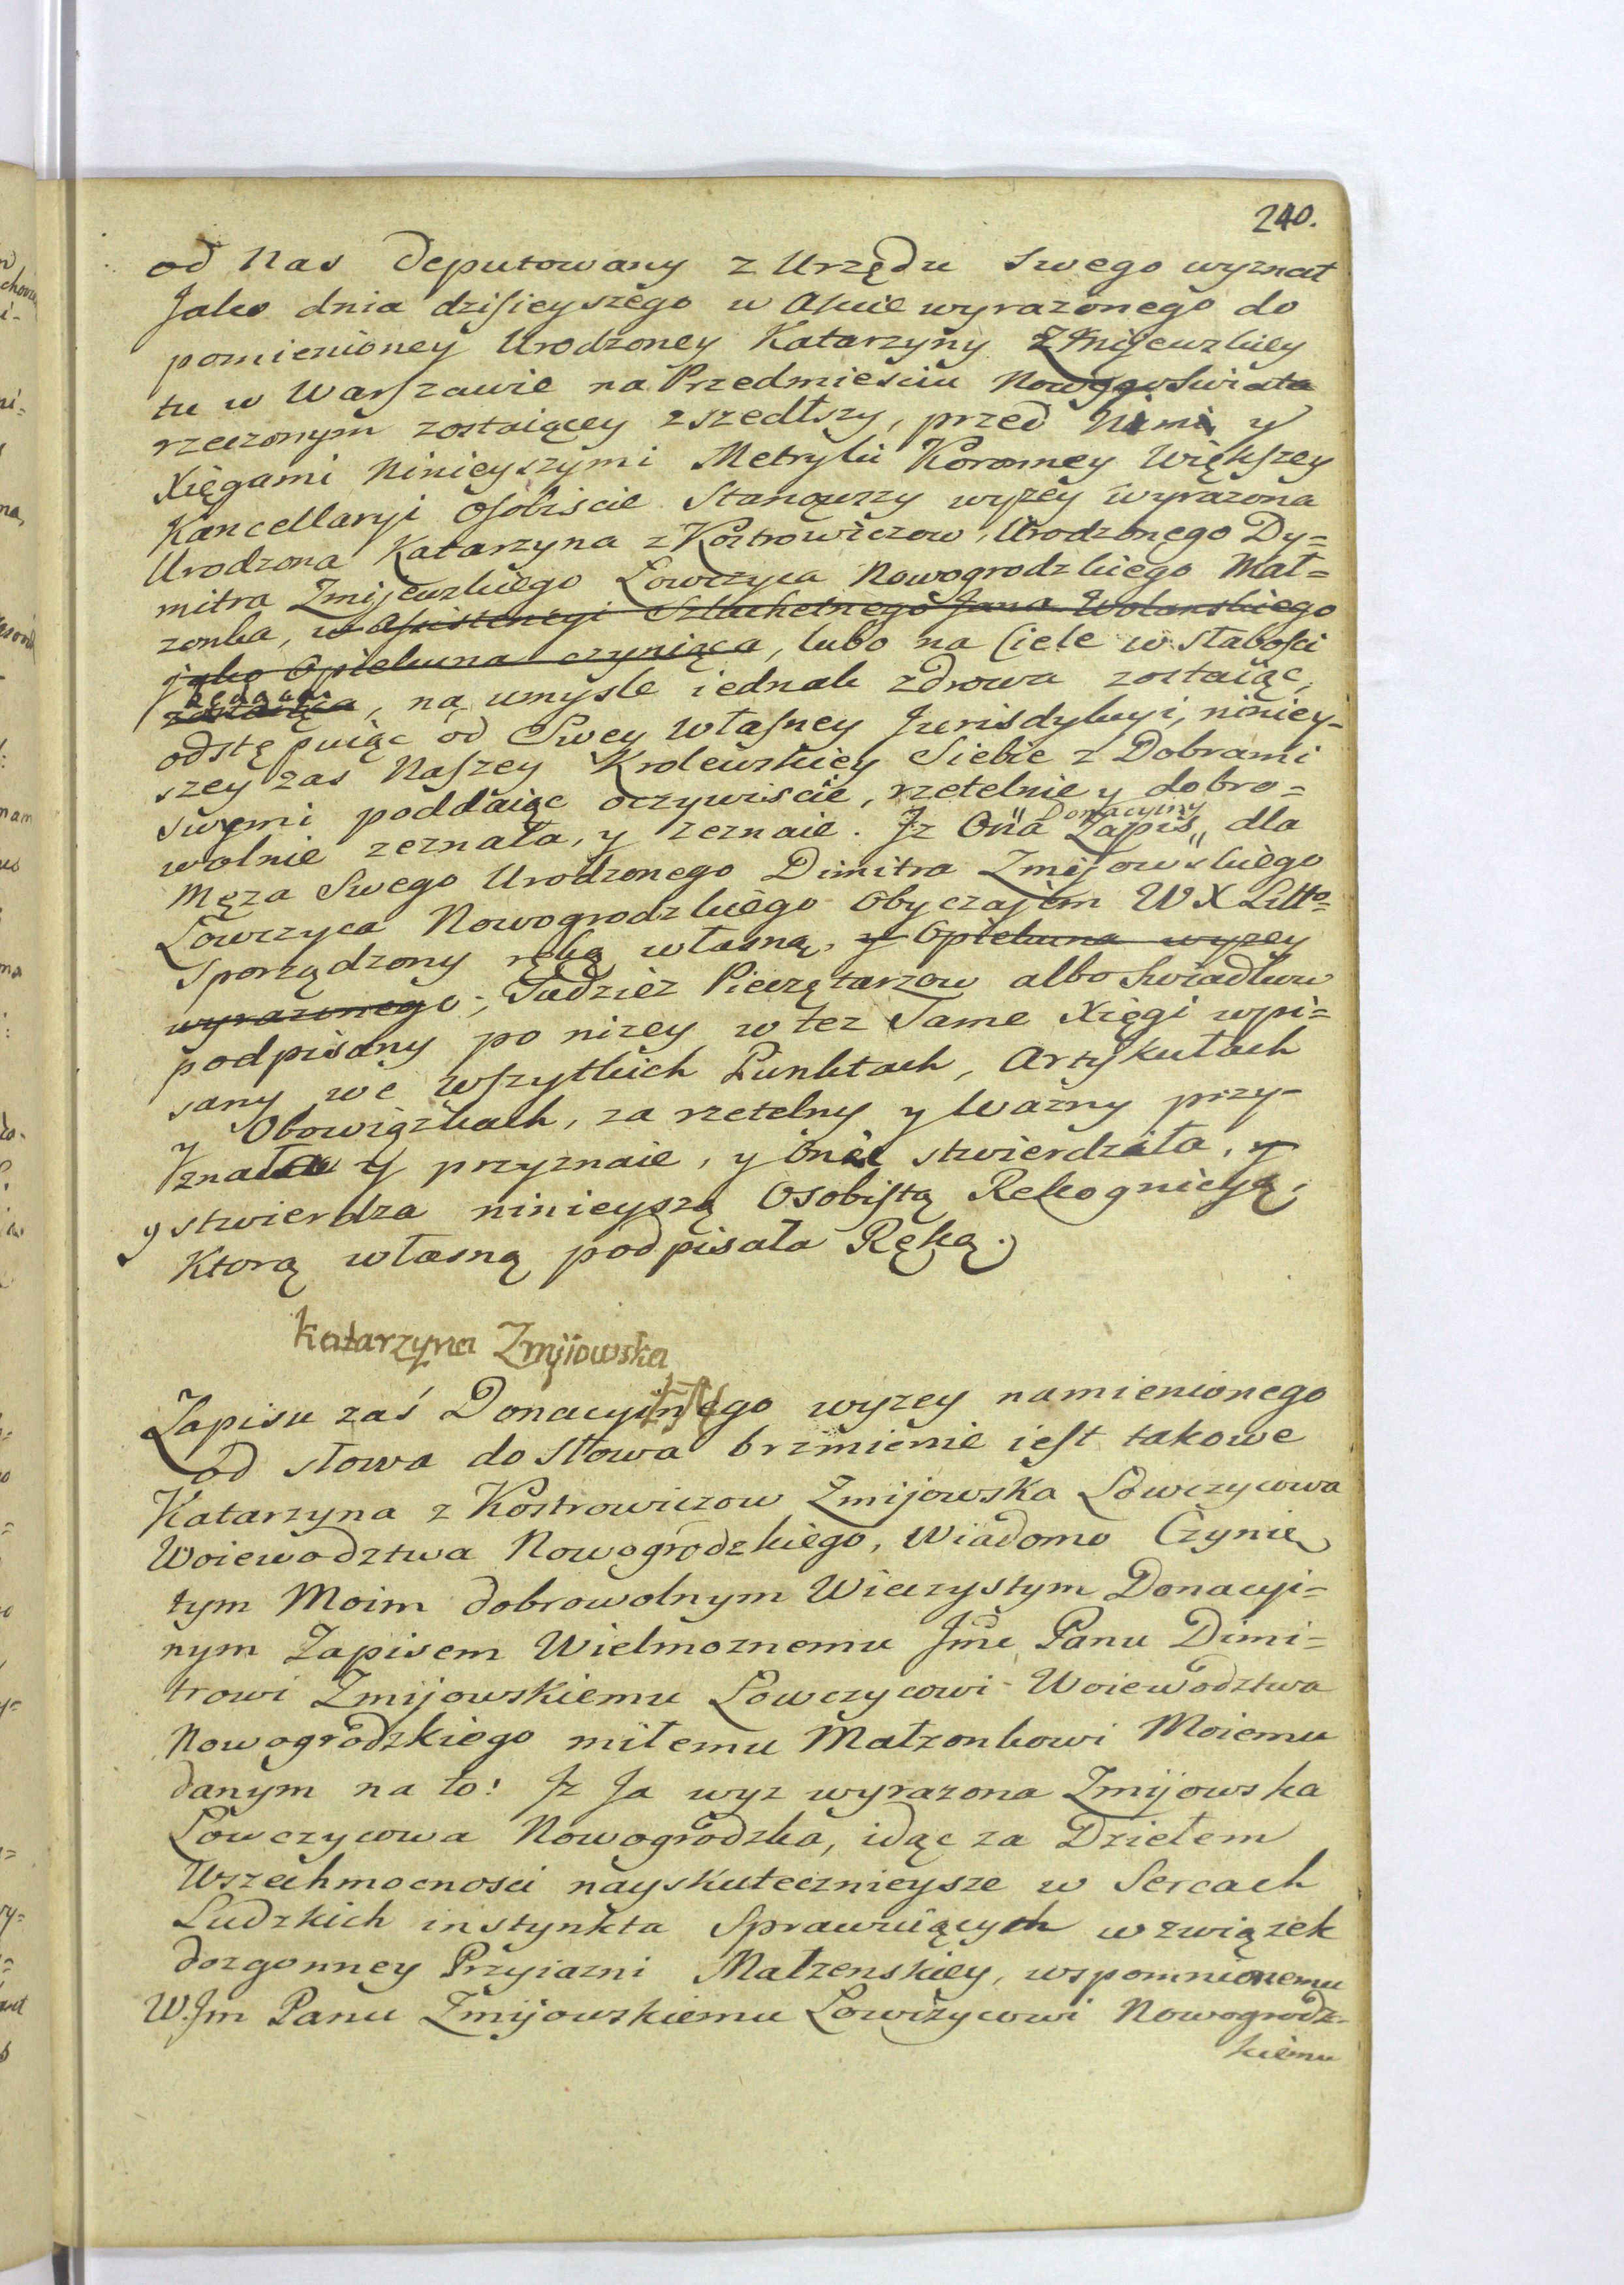 240.
od Nas Deputowany z Urzędu swego wyznał
Jako dnia dzisieyszego w Akcie wyrazonego do
pomienioney Urodzoney Katarzyny Zmijewskiey
tu w Warszawie na Przedmiesciu Nowego Swiata
rzeczonym zostaiącey zszedłszy, przed Nim y
Xięgami Ninieyszymi Metryki Koronney Większey
Kancellaryi Osobiscie Stanąwszy wyzey wyrazona
Urodzona Katarzyna z Kostrowiczow, Urodzonego Dy=
mitra Zmijewskiego Łowczyca Nowogrodzkiego Mał=
zonka, w Assistencyi Szlachetnego Jana Wolanskiego
jako Opiekuna czyniąca, lubo na Ciele w Słabosci
będąca
zostaiąca, na umysle iednak zdrowa zostaiąc,
odstępuiąc od Swey Własney Jurisdykcyi, niniey-
szey zas Naszey Krolewskiey Siebie z Dobrami
swymi poddaiąc oczywiscie, rzetelnie y dobro=
Donacyiny
wolnie zeznała, y zeznaie. Jz Ona Zapis,, dla
Męza Swego Urodzonego Dimitra Zmijowskiego
Łowczyca Nowogrodzkiego Obyczajem WX Litto=
Sporządzony ręką własną, y Opiekuna wyzey
wyrazonego; Tudziez Pieczętarzow albo Swiadkow
podpisany po nizey w tez Same Xięgi wpi=
sany we wszytkich Punktach, Artykułach
y Obowiązkach, za rzetelny y Wazny przy-
znała y przyznaie, y onże stwierdziła, y
y stwierdza ninieyszą Osobistą Rekognicyą;
Ktorą własną podpisała Ręką.
Katarzyna Zmijowska
Zapisu zaś Donacyinego wyzey namienionego
od słowa do słowa brzmienie iest takowe
Katarzyna z Kostrowiczow Zmijowska Łowczycowa
Woiewodztwa Nowogrodzkiego, Wiadomo Czynię
tym Moim dobrowolnym Wieczystym Donacyi=
nym Zapisem Wielmoznemu Jmc Panu Dimi=
trowi Zmijowskiemu Łowczycowi Woiewodztwa
Nowogrodzkiego miłemu Małzonkowi Moiemu
danym na to: Jz Ja wyz wyrazona Zmijowska
Łowczycowa Nowogrodzka, idąc za Dziełem
Wszechmocnosci nayskutecznieysze w Sercach
Ludzkich instynkta Sprawuiących w związek
dozgonney Przyiazni Małzenskiey, wspomnionemu
W.Jm Panu Zmijowskiemu Łowczycowi Nowogrodz-
kiemu